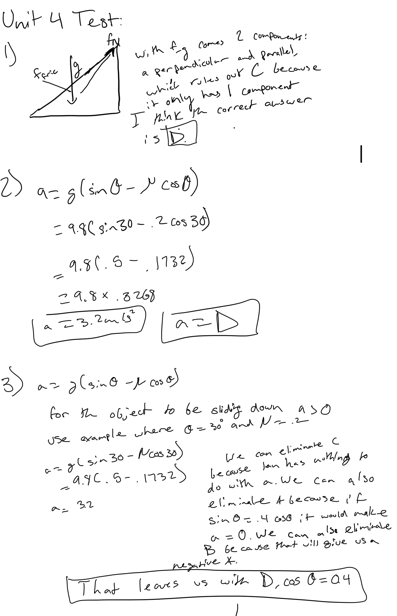 Unit 4 Test:
1)
fN
g
force
with fg comes 2 components:
a perpendicular and parallel,
which rules out C because
it only has 1 component
I think the correct answer
is D.
2) a = g(sinθ - μcosθ)
= 9.8(sin30 - .2cos30)
= 9.8(.5 - .1732)
= 9.8 × .3268
a = 3.2m/s²
a = D
3) a = g(sinθ - μcosθ)
for the object to be sliding down a>0
Use example where θ = 30° and μ = .2
a = g(sin30 - μcos30)
= 9.8(.5 - .1732)
a = 3.2
We can eliminate C
because tan has nothing to
do with a. We can also
eliminate A because if
sinθ = .4 cosθ, it would make
a = 0. We can also eliminate
B because that will give us a
negative
That leaves us with D, cosθ = 0.4